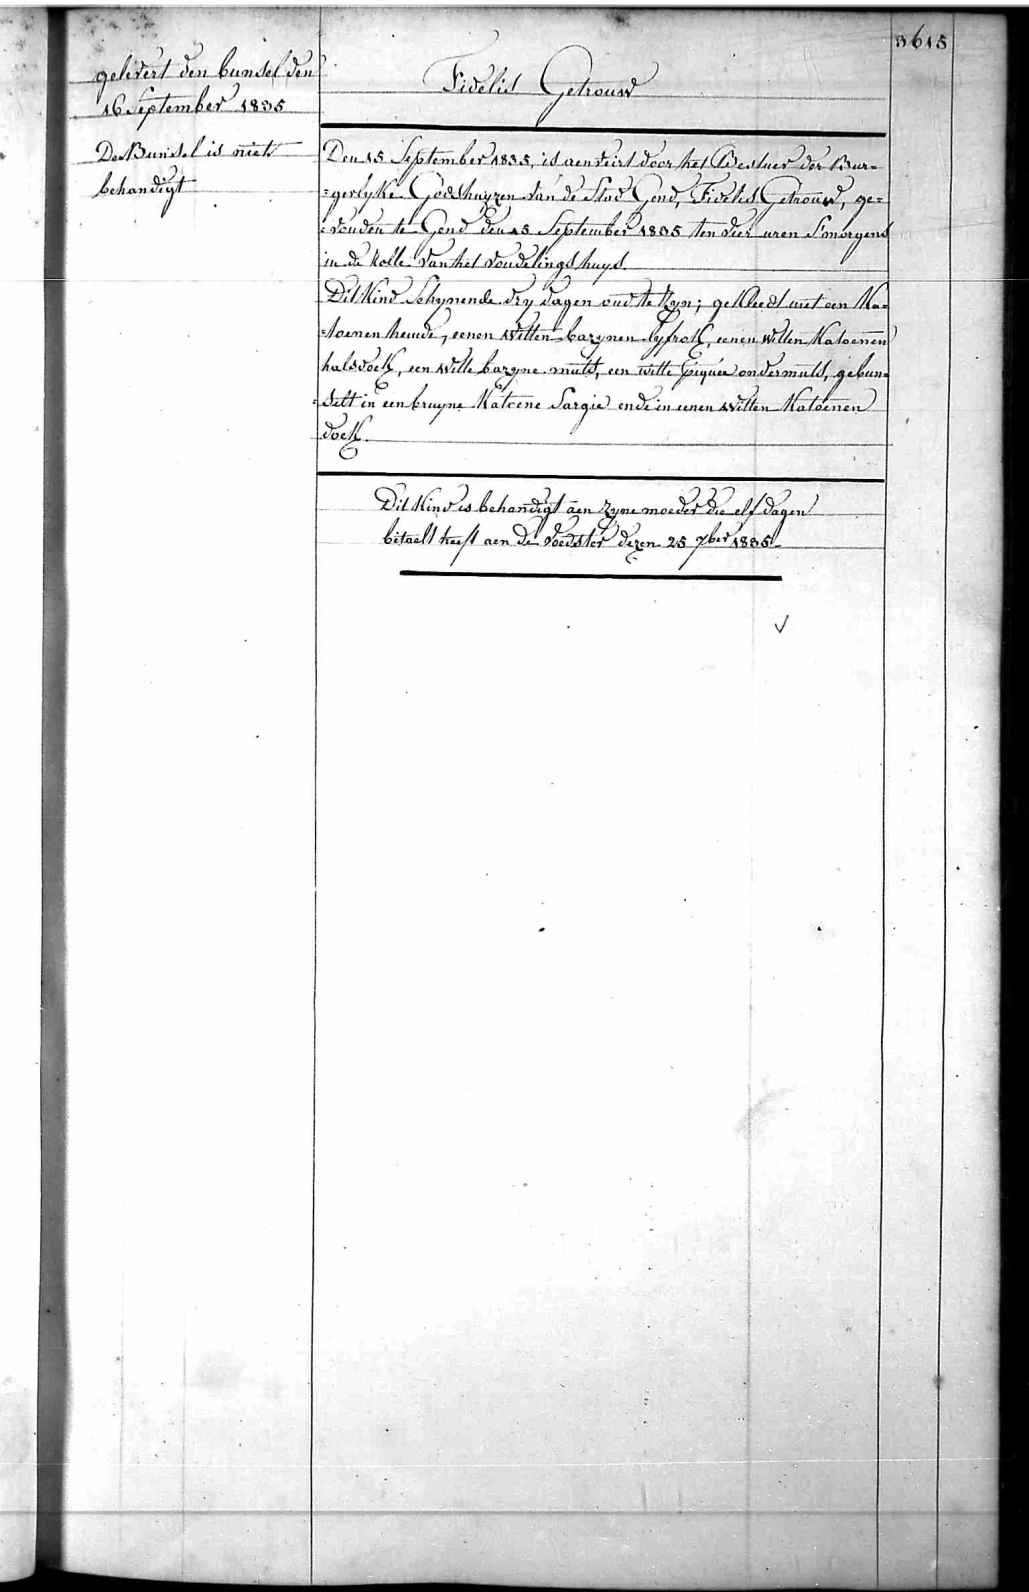 3615
gelevert den bunsel den
16 September 1835
De Bunsel is niet
behandigt
Fidelis Getrouw
Den 15 September 1835, is aenveirt door het Bestuer der Bur=
=gerlyke Godshuyzen van de Stad Gend, Fidelis Getrouw, ge=
=vonden te Gend den 15 September 1835 ten vier uren S'morgens
in de rolle van het vondelingshuys.
Dit Kind Schynende dry dagen oud te Zyn; gekleedt met een Ka=
=toenen hemde, eenen Witten bazynen lyfrok, eenen witten Katoenen
halsdoek, een Witte bazyne muts, een witte piquée ondermuts, gebun=
=selt in een bruyne Katoene Sargie ende in eenen Witten Katoenen
doek.
Dit Kind is behandigt aen zyne moeder die elf dagen
betaelt heeft aen de voedster dezen 25 7ber 1835